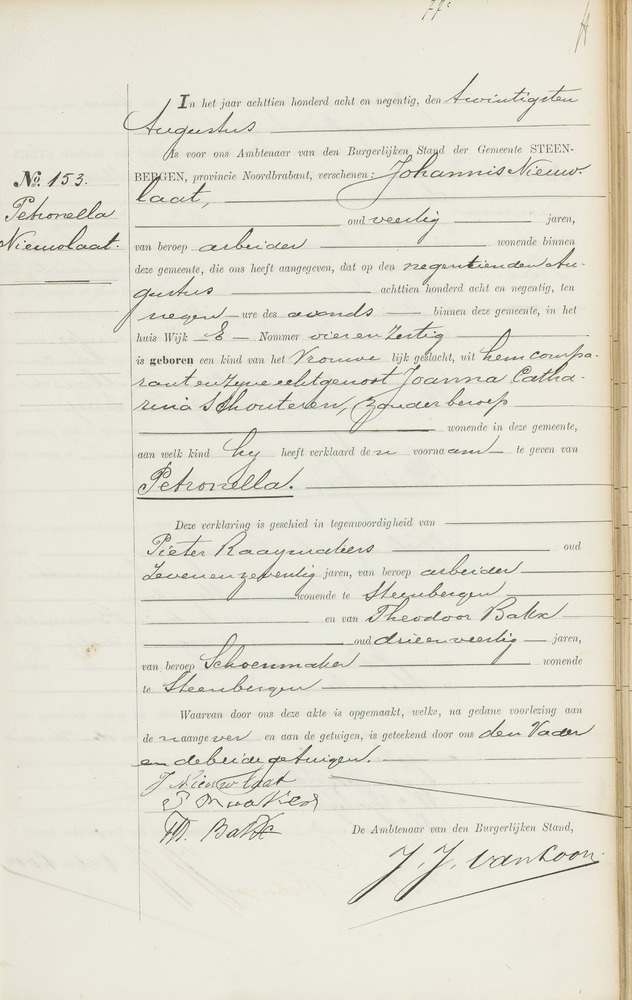 77
No. 153.
Petronella
Nieuwlaat.
In het jaar achttien honderd acht en negentig, den twintigsten
Augustus
is voor ons Ambtenaar van den Burgerlijken Stand der Gemeente STEEN-
BERGEN, provincie Noordbrabant, verschenen: Johannis Nieuw-
laat,
oud veertig jaren,
van beroep arbeider wonende binnen
deze gemeente, die ons heeft aangegeven, dat op den negentienden Au-
gustus achttien honderd acht en negentig, ten
negen ure des avonds binnen deze gemeente, in het
huis Wijk E Nommer vier en zestig
is geboren een kind van het Vrouwe lijk geslacht, uit hem compa-
rant en zijne echtgenoot Joanna Catha-
rina Schouteren, zonder beroep
wonende in deze gemeente,
aan welk kind hij heeft verklaard den voornaam te geven van
Petronella.
Deze verklaring is geschied in tegenwoordigheid van
Pieter Raaymakers oud
zevenenzeventig jaren, van beroep arbeider
wonende te Steenbergen
en van Theodoor Bakx
oud drieenveertig jaren,
van beroep Schoenmaker wonende
te Steenbergen
Waarvan door ons deze akte is opgemaakt, welke, na gedane voorlezing aan
de n aangever en aan de getuigen, is geteekend door ons den Vader
en de beide getuigen.
J Nieuwlaat
Th. Bakx
De Ambtenaar van den Burgerlijken Stand,
J. J. van Loon